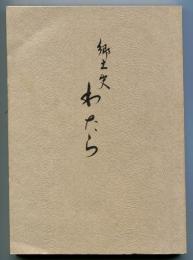 郷土史
わたら